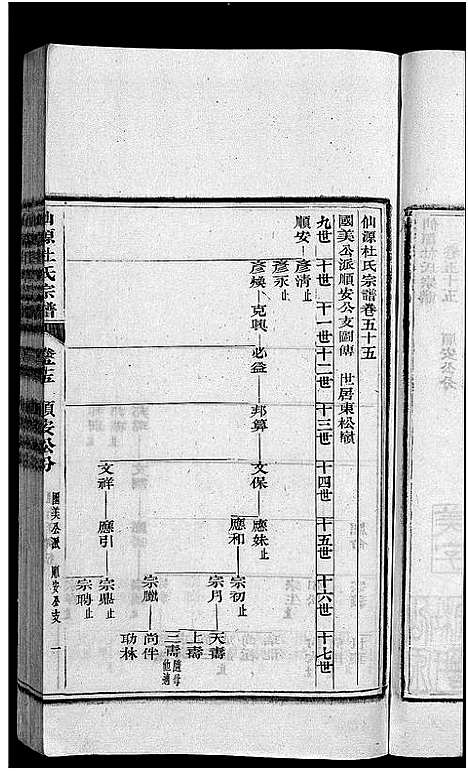 仙源杜氏宗譜卷五十五
國美公派順安公支圖傳　世居東松嶺
九世　十世　十一世　十二世　十三世　十四世　十五世　十六世　十七世
順安　彥清止
彥永止
彥煥　克興　必益　邦算　文保　應妹止
應和　宗初止
宗月　天壽
上壽
三壽隨母他適
宗臘　尚伴
功林
文祥　應引　宗鼎止
宗聘止
仙源杜氏宗譜　卷五十五　順安公分　國美公派　順安公支　一
順安公分